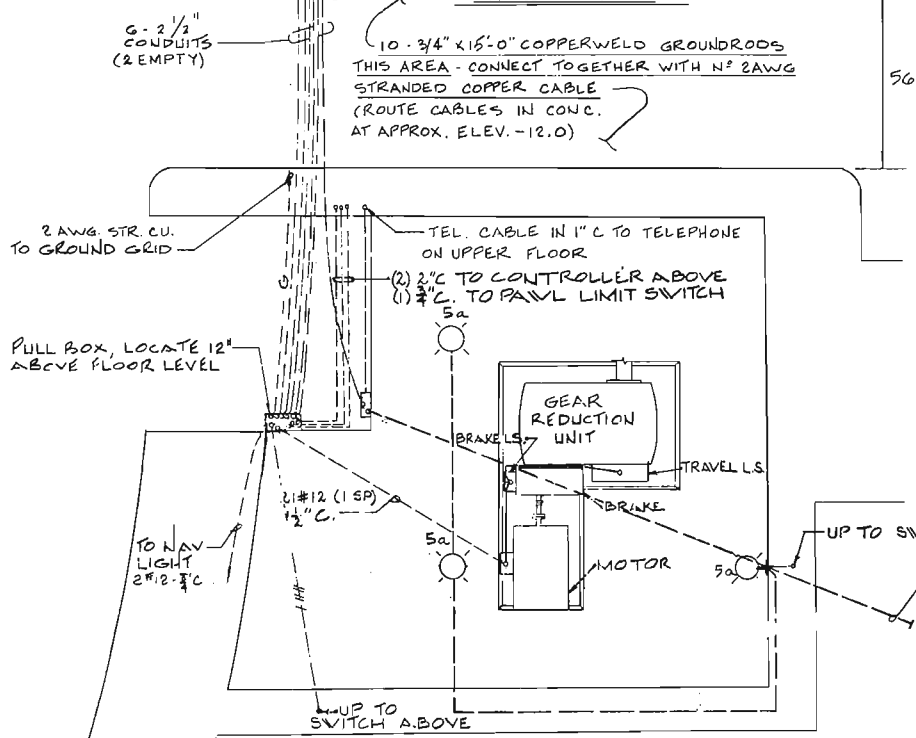 6 - 2 1/2"
CONDUITS
(2 EMPTY)
10 - 3/4" x 15'-0" COPPERWELD GROUNDRODS
THIS AREA - CONNECT TOGETHER WITH Nº 2AWG
STRANDED COPPER CABLE
(ROUTE CABLES IN CONC.
AT APPROX. ELEV. -12.0)
56
2 AWG. STR. CU.
TO GROUND GRID
TEL. CABLE IN 1" C TO TELEPHONE
ON UPPER FLOOR
(2) 2"C TO CONTROLLER ABOVE
(1) 3/4"C. TO PAWL LIMIT SWITCH
6
5a
PULL BOX, LOCATE 12"
ABOVE FLOOR LEVEL
GEAR
REDUCTION
UNIT
BRAKE L.S.
TRAVEL L.S.
BRAKE
21#12 (1 SP)
1 1/2" C.
TO NAV
LIGHT
2#12-3/4"C.
5a
MOTOR
5a
UP TO SW
UP TO
SWITCH ABOVE